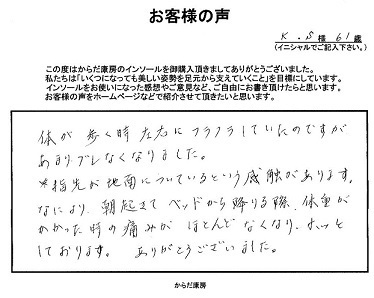 お客様の声
K.S 様 61 歳
(イニシャルでご記入下さい。)
この度はからだ康房のインソールを御購入頂きましてありがとうございました。
私たちは「いくつになっても美しい姿勢を足元から支えていくこと」を目標にしています。
インソールをお使いになった感想やご意見など、ご自由にお書き頂けたらと思います。
お客様の声をホームページなどで紹介させて頂きたいと思います。
体が歩く時左右にフラフラしていたのですが
あまりブレなくなりました。
*指先が地面についているという感触があります。
なにより、朝起きてベッドから降りる際、体重が
かかった時の痛みがほとんどなくなり、ホッと
しております。 ありがとうございました。
からだ康房